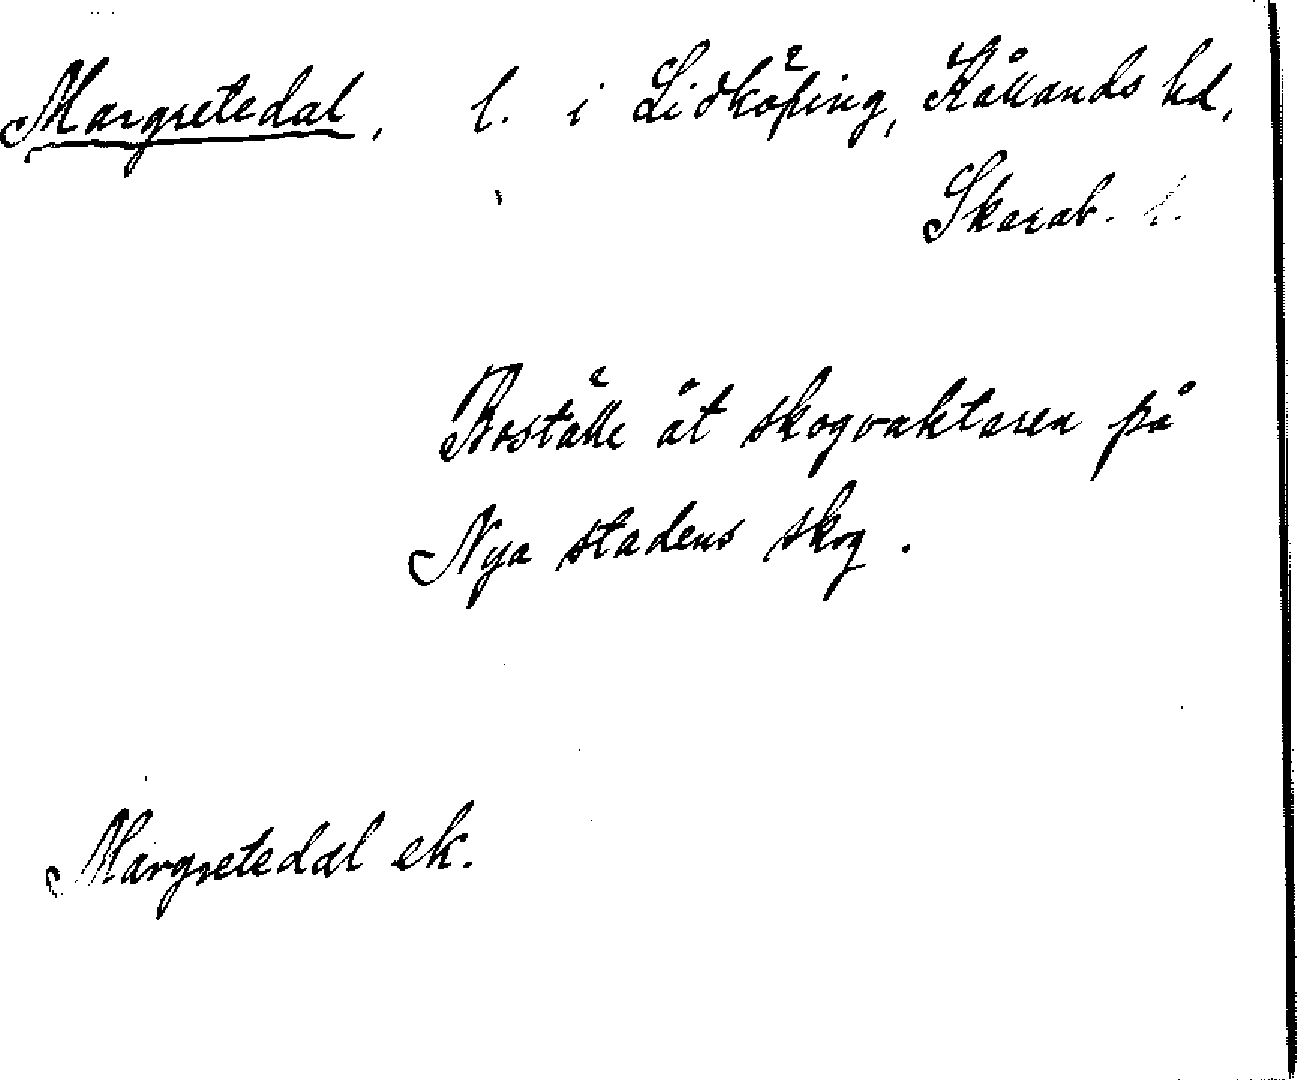 Margretedal, l. i Lidköping, Kållands hd,
Skarab. l.
Boställe åt skogvaktaren på
Nya stadens skog.
Margretedal ek.